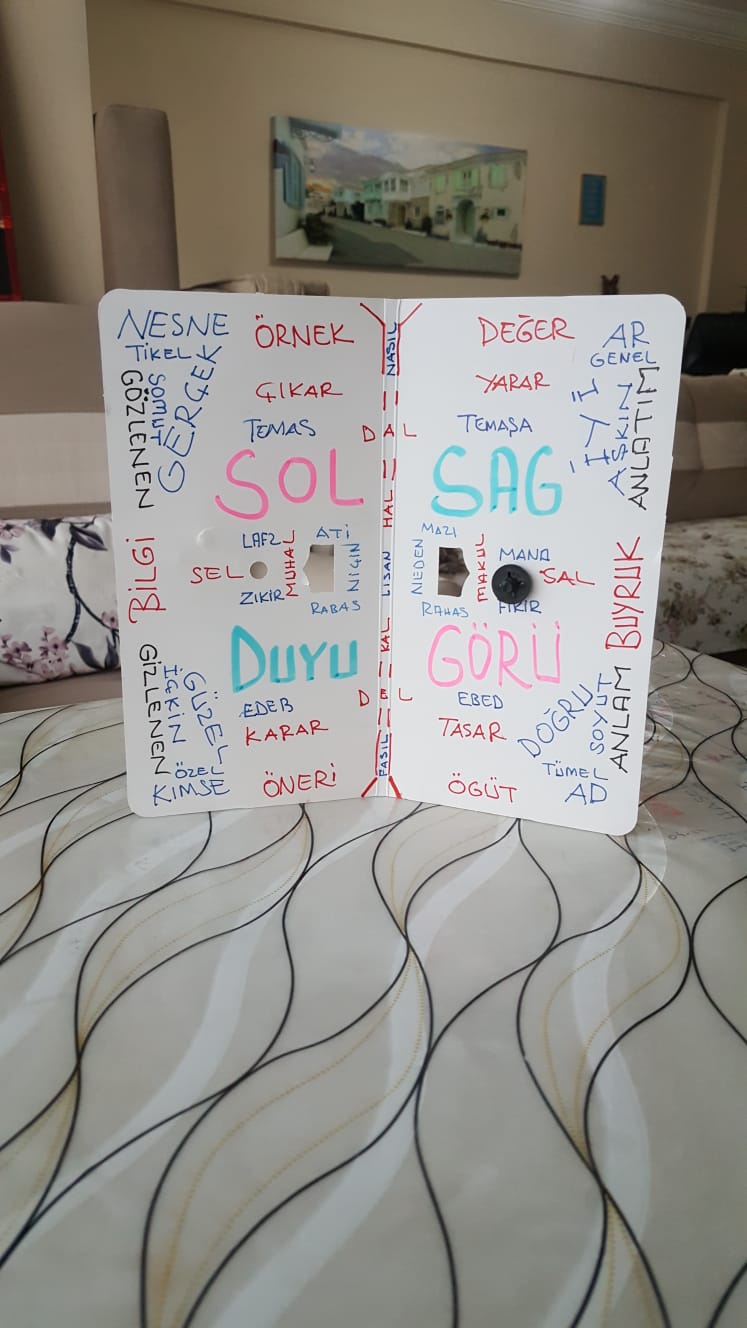 NESNE
TİKEL
SOMUT
GERÇEK
GÖZLENEN
ÖRNEK
ÇIKAR
TEMAS
SOL
BİLGİ
SEL
LAFZ
ZIKIR
MUHAL
ATİ
NIÇIN
RABAS
DUYU
EDEB
KARAR
ÖNERİ
GİZLENEN
İÇKİN
GÜZEL
ÖZEL
KIMSE
NASIL
DAL
HAL
LISAN
KAL
DEL
FASIL
DEĞER
YARAR
TEMAŞA
SAG
AR
GENEL
İYİ
AŞKIN
ANLATIM
MAZI
NIEDEN
MAKUL
MANA
FIKIR
SAL
RAHAS
BUYRUK
GÖRÜ
EBED
TASAR
ÖGÜT
DOĞRU
SOYUT
ANLAM
TÜMEL
AD